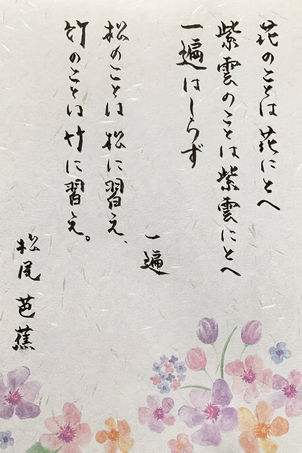 花のことは花にとへ
紫雲のことは紫雲にとへ
一遍はしらず
一遍
松のことは松に習え、
竹のことは竹に習え。
松尾芭蕉